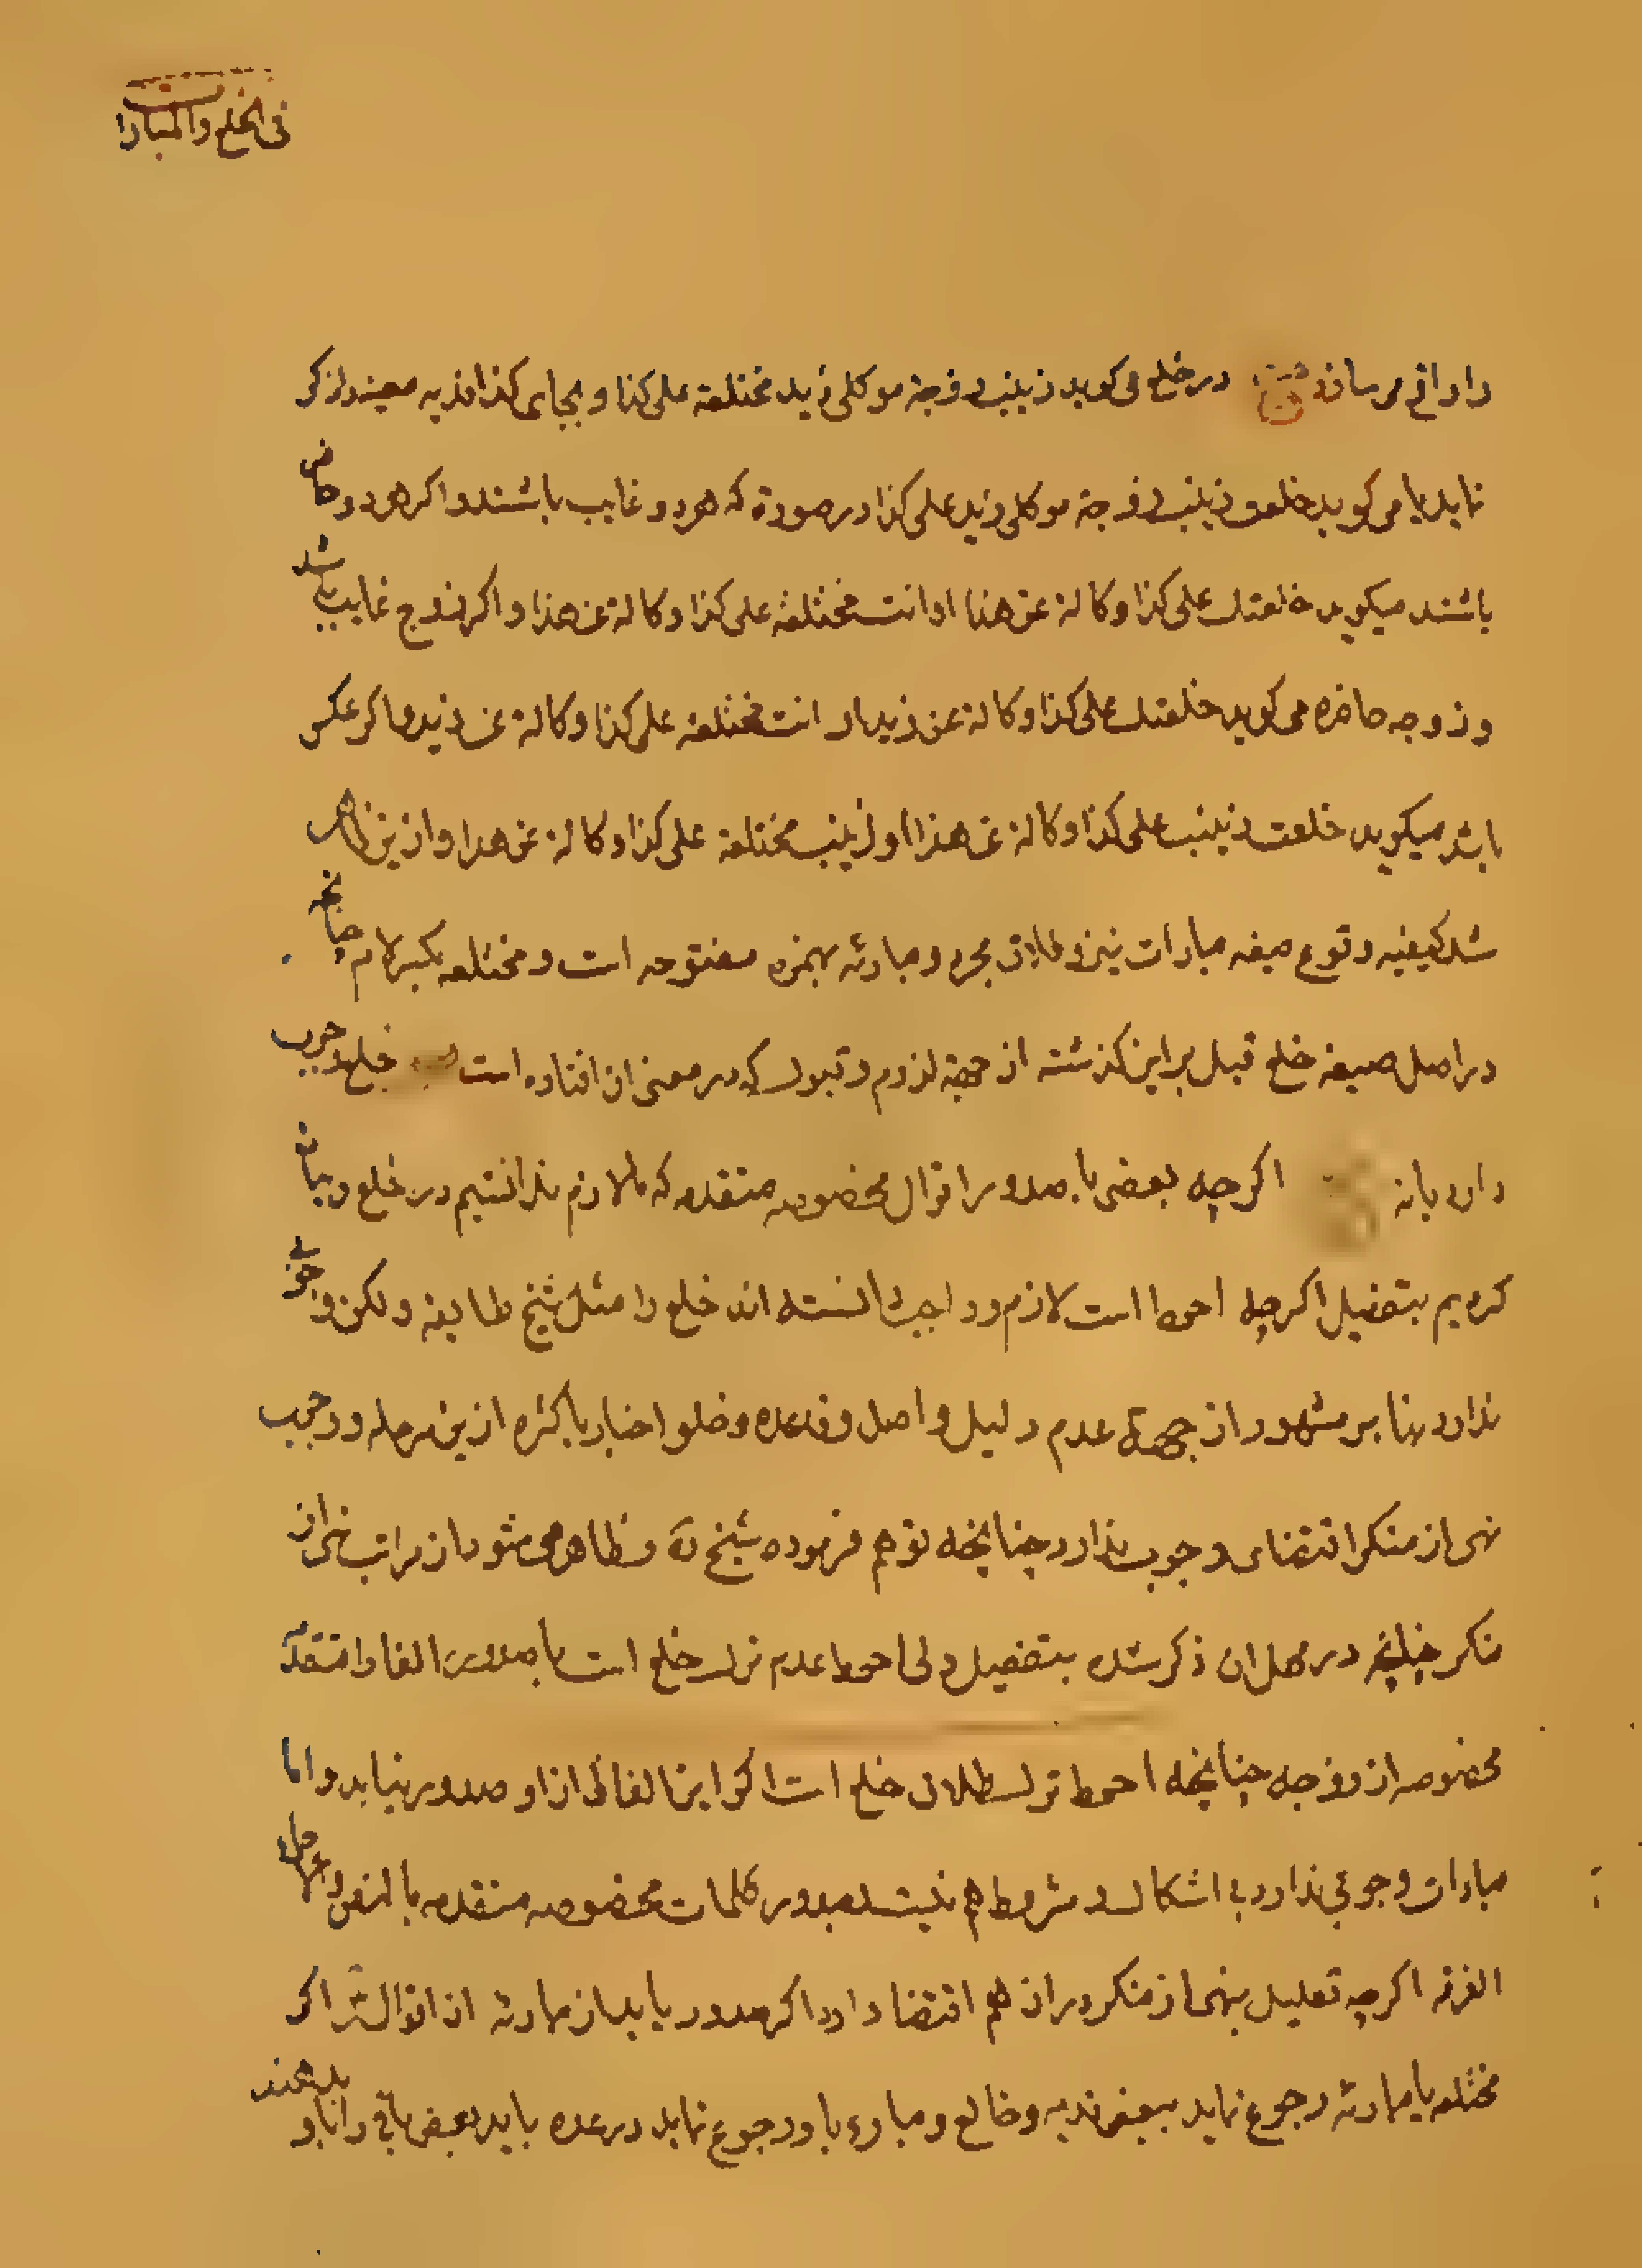 فی الخلع والمبارات
را دانی میرساند در خلع می کوید زینب زوجة موکلی زید مختلعة علی کذا و بجای کذا فدیه معینه را ذکر
نماید یا می کوید خلعت زینب زوجة موکلی زید علی کذا در صورة که هر دو غایب باشند و اکر هر دو حاضر
باشند میکوید خالعتك علی کذا وکالة عن هذا او انت مختلعة علی کذا وکالة عن هذا و اکر زوج غایب باشد
و زوجه حاضره می کوید خلعتك علی کذا وکالة عن زید او انت مختلعة علی کذا وکالة عن زید و اکر عکس
باشد میکوید خلعت زینب علی کذا وکالة عن هذا او زینب مختلعة علی کذا وکالة عن هذا و از این ظاهر
شد کیفیه وقوع صیغه مبارات نیز و طلاق مجرد و مبارئه بهمزه مفتوحه است و مختلعه بکسر لام چنانچه
در اصل صیغه خلع قبل بر این کذشته از جهة لزوم و قبول که در معنی ان افتاده است خلع وجوب
دارد یا نه اکرچه بعضی با صدور اقوال مخصوصه متقدمه که ما لازم ندانستیم در خلع و بیان
کردیم بتفصیل اکرچه احوط است لازم و واجب دانسته اند خلع را مثل شیخ طایفه ولکن وجوبی
ندارد بنا بر مشهور از جهة عدم دلیل و اصل و قاعده و خلو اخبار باکثره از این مرحله و وجوب
نهی از منکر اقتضای وجوب ندارد چنانچه توهم فرموده شیخ ره و ظاهر می شود از مراتب نهی از
منکر چنانچه در محل ان ذکر شده بتفصیل ولی احوط عدم ترك خلع است با صدور الفاظ متقدمه
مخصوصه از زوجه چنانچه احوط ترك طلاق خلع است اکر این الفاظ از او صدور نیابد و اما
مبارات وجوبی ندارد بی اشکال و مشروط هم نیست بصدور کلمات مخصوصه متقدمه بالنص و اجماع
الفرقه اکرچه تعلیل بنهی از منکر در ان هم اقتضا دارد اکر صدور یابد از مبارئه ان اقوال اکر
مختلعه یا مبارئه رجوع نماید ببعض فدیه و خالع و مباری باو رجوع نماید در عده باید بعض باقی را باو بدهند